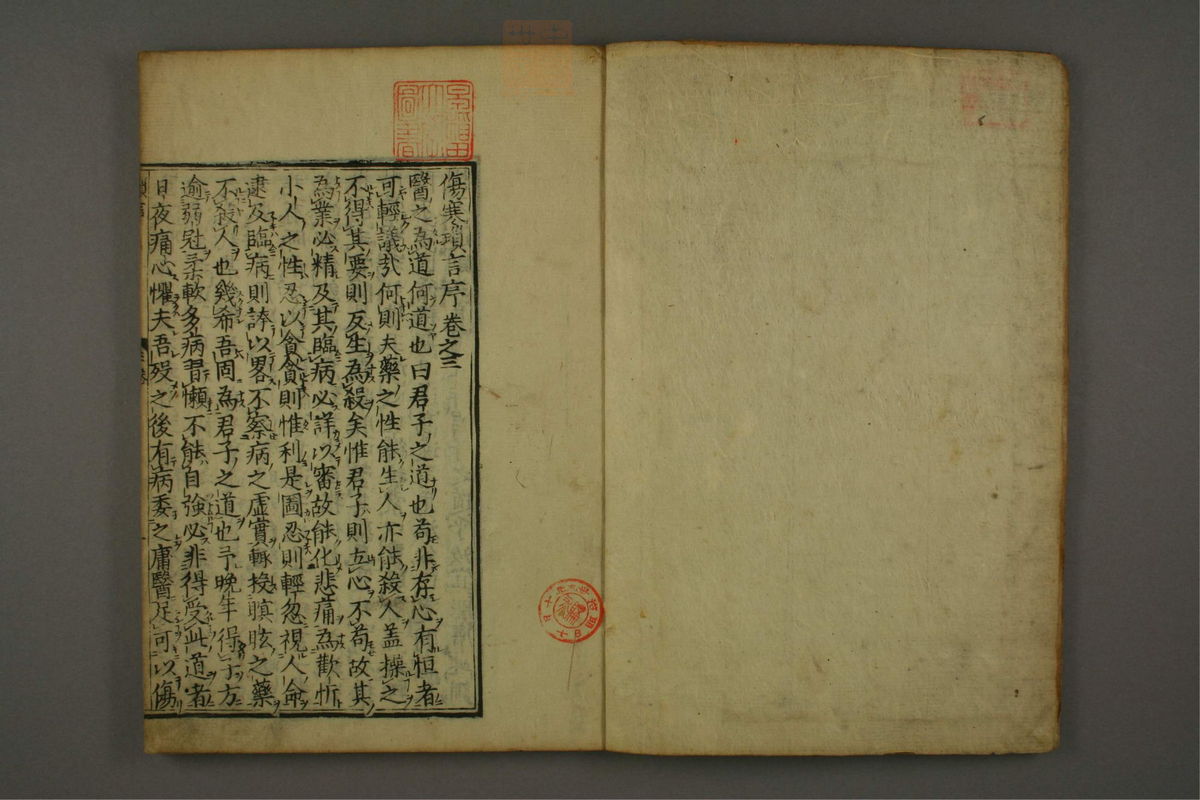 傷寒瑣言序卷之三
醫之為道何道也曰君子之道也苟非存心有恒者
可輕議㢤何則夫藥之性能生人亦能殺人盖操之
不得其要則反生為殺矣惟君子則立心不苟故其
為業必精及其臨病必詳以審故能化悲痛為歡忻
小人之性忍以貪貪則惟利是圖忍則輕忽視人命
逮及臨病則誇以畧不察病之虛實輙投瞑眩之藥
不殺人也幾希吾固為君子之道也予晚年得子方
逾弱冠柔軟多病習懶不能自強必非得受此道者
日夜痛心懼夫吾歿之後有病委之庸醫足可以傷